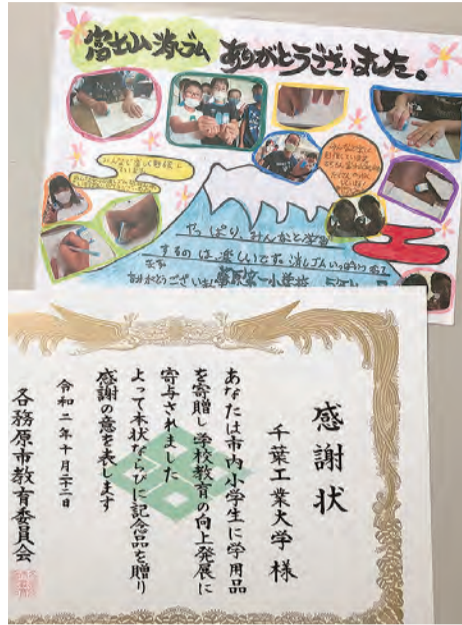 富士山消ゴム ありがとうございました。
みんなで楽しく勉強し
やっぱり、みんなと学習
するのは楽しいです。消しゴムいっぱいつかって
ます
ありがとうございました
第一小学校
感謝状
千葉工業大学 様
あなたは市内小学生に学用品
を寄贈し学校教育の向上発展に
寄与されました
よって本状ならびに記念品を贈り
感謝の意を表します
令和二年十月二十二日
各務原市教育委員会